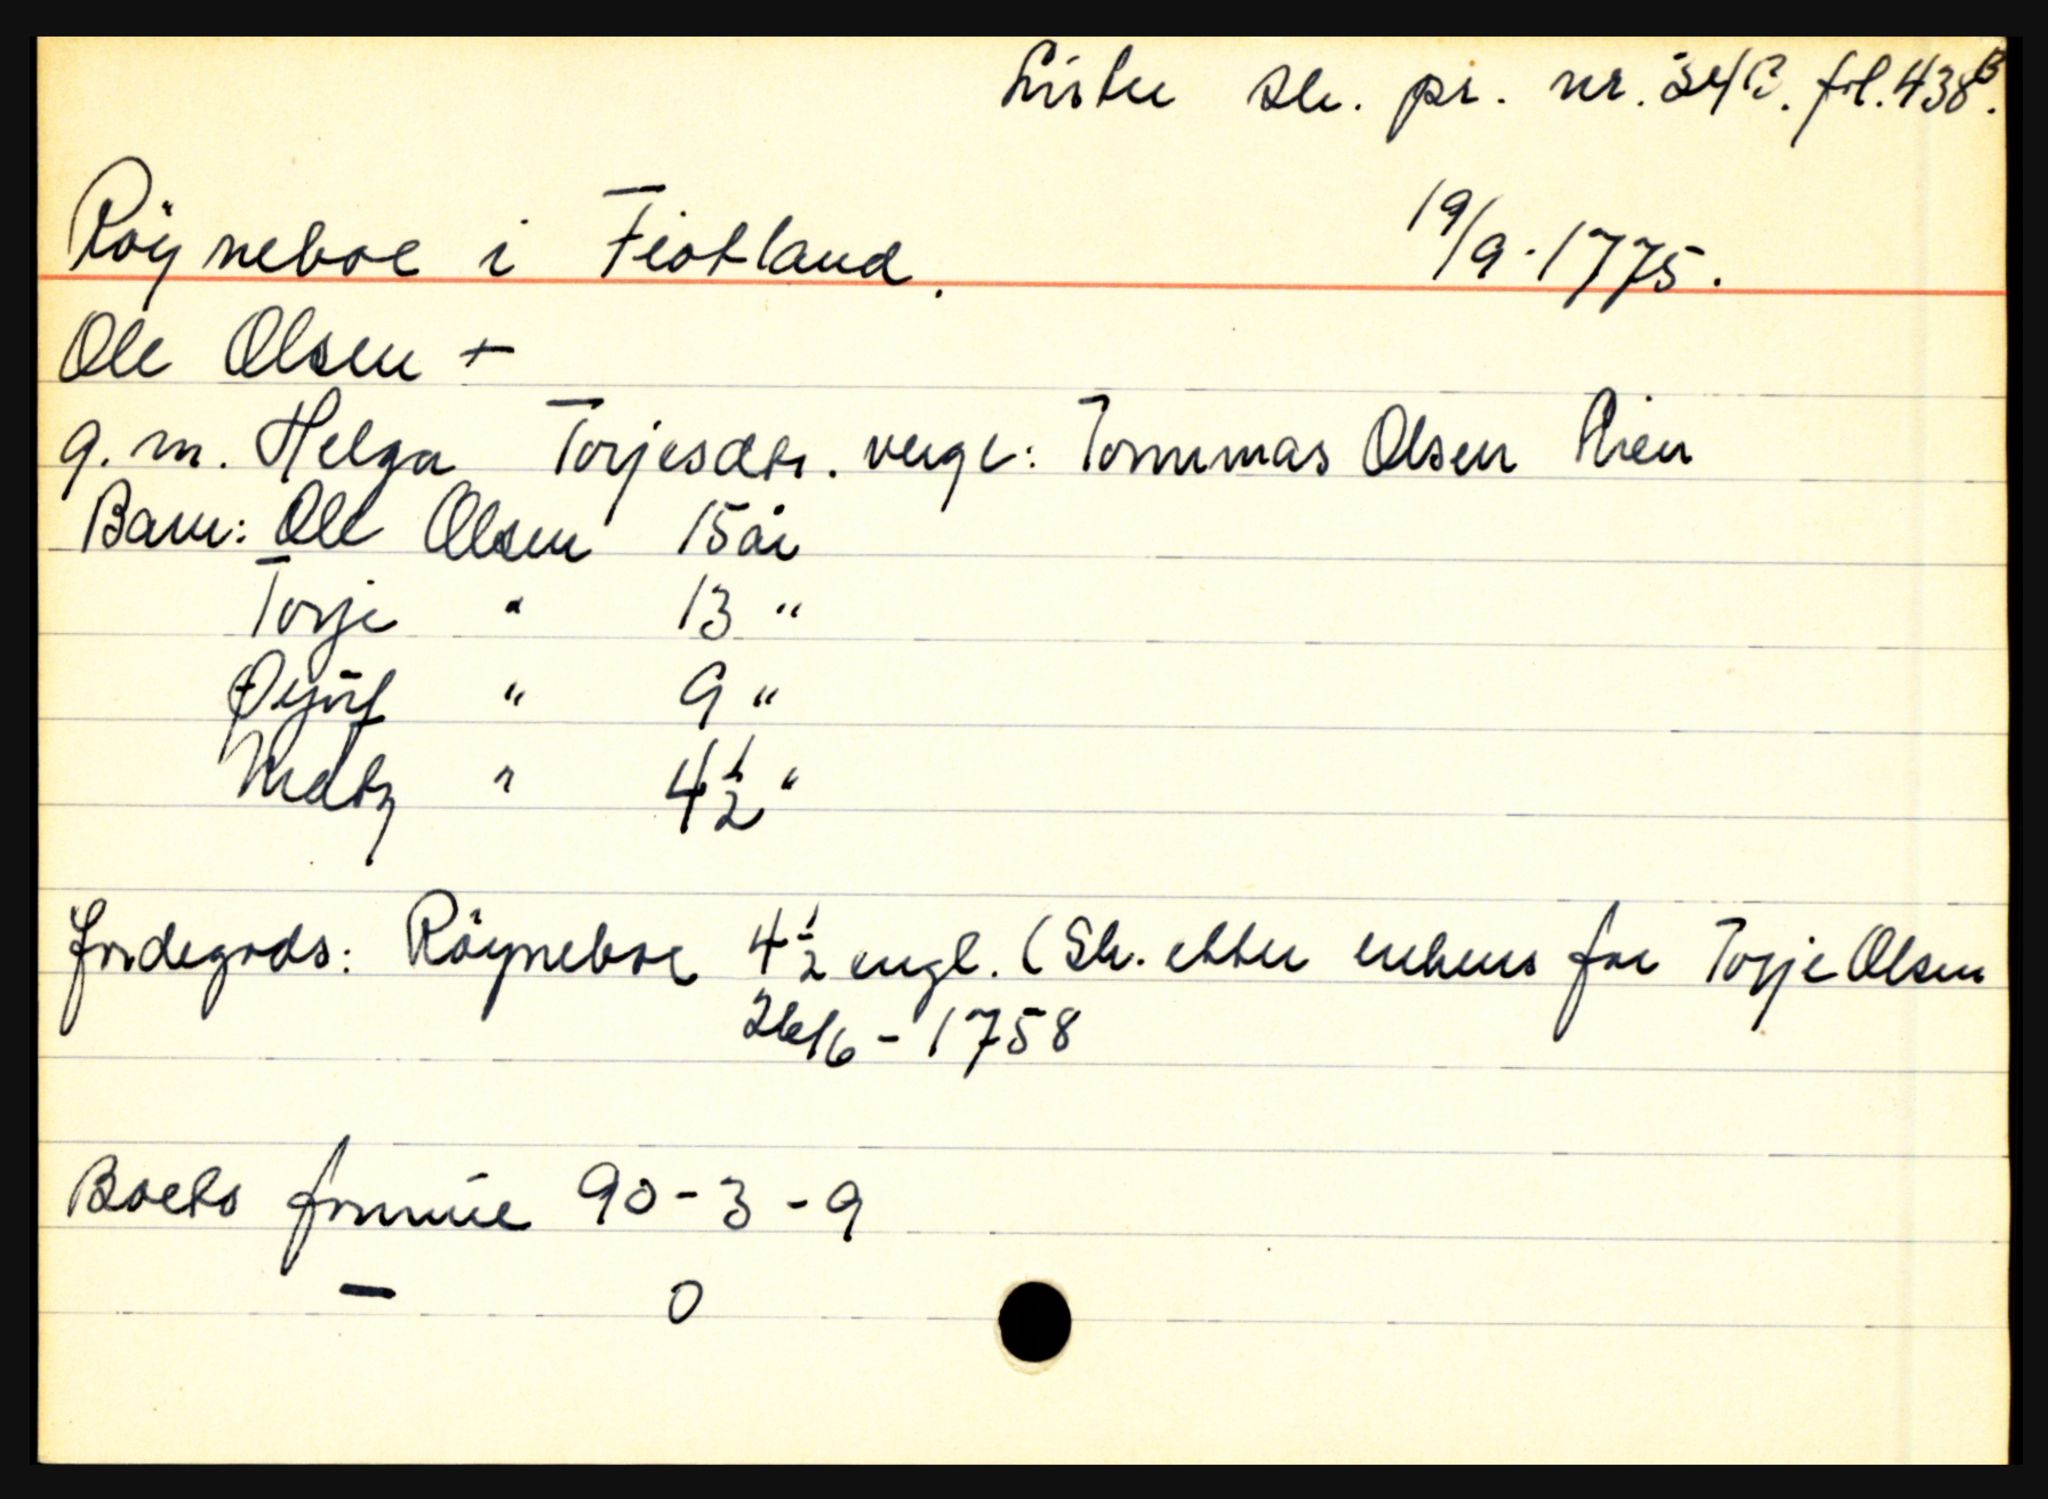 Lister sk. pr. nr. 34B. fol. 438B.
Röyneboe i Fiotland.
19/9-1775.
Ole Olsen +
g. m. Helga Torjesdtr. verge: Tommas Olsen
Barn: Ole Olsen 15 år
Torje " 13 "
" 9 "
Matz " 4½ "
Jordegods: Röyneboe 4½ engl. (Sk. etter enkens far Torje Olsen
26/6-1758
Boets formüe 90-3-9
— 0